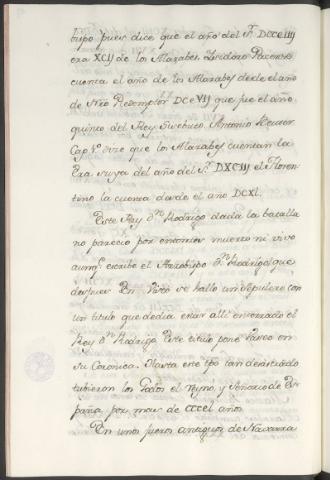 bispo pues dice que el año del S.r DCCCIIIJ
era XCIJ de los Alarabes. Isidoro Pacense
cuenta el año de los Alarabes desde el año
de Nro Redemptor DC e VIJ que fue el año
quinto del Rey Antonio
Cap.º Vº dize que los Alarabes cuentan la
Era suya del año del S.r DXCIIJ el Floren-
tino la cuenta desde el año DCXL.
Este Rey D.n Rodrigo dada la batalla
no parecio por entonces muerto ni vivo
aunq.e escribe el Arzobispo D.n Rodrigo que
despues En Viseo se hallo un sepulcro con
un titulo que decia estar alli enterrado el
Rey D.n Rodrigo Este titulo pone Vaseo en
su Coronica. Hasta este tpo tan desastrado
tubieron los Godos el Reyno, y Señorio de Es-
paña por mas de CCCCL años.
En unos fueros antiguos de Navarra